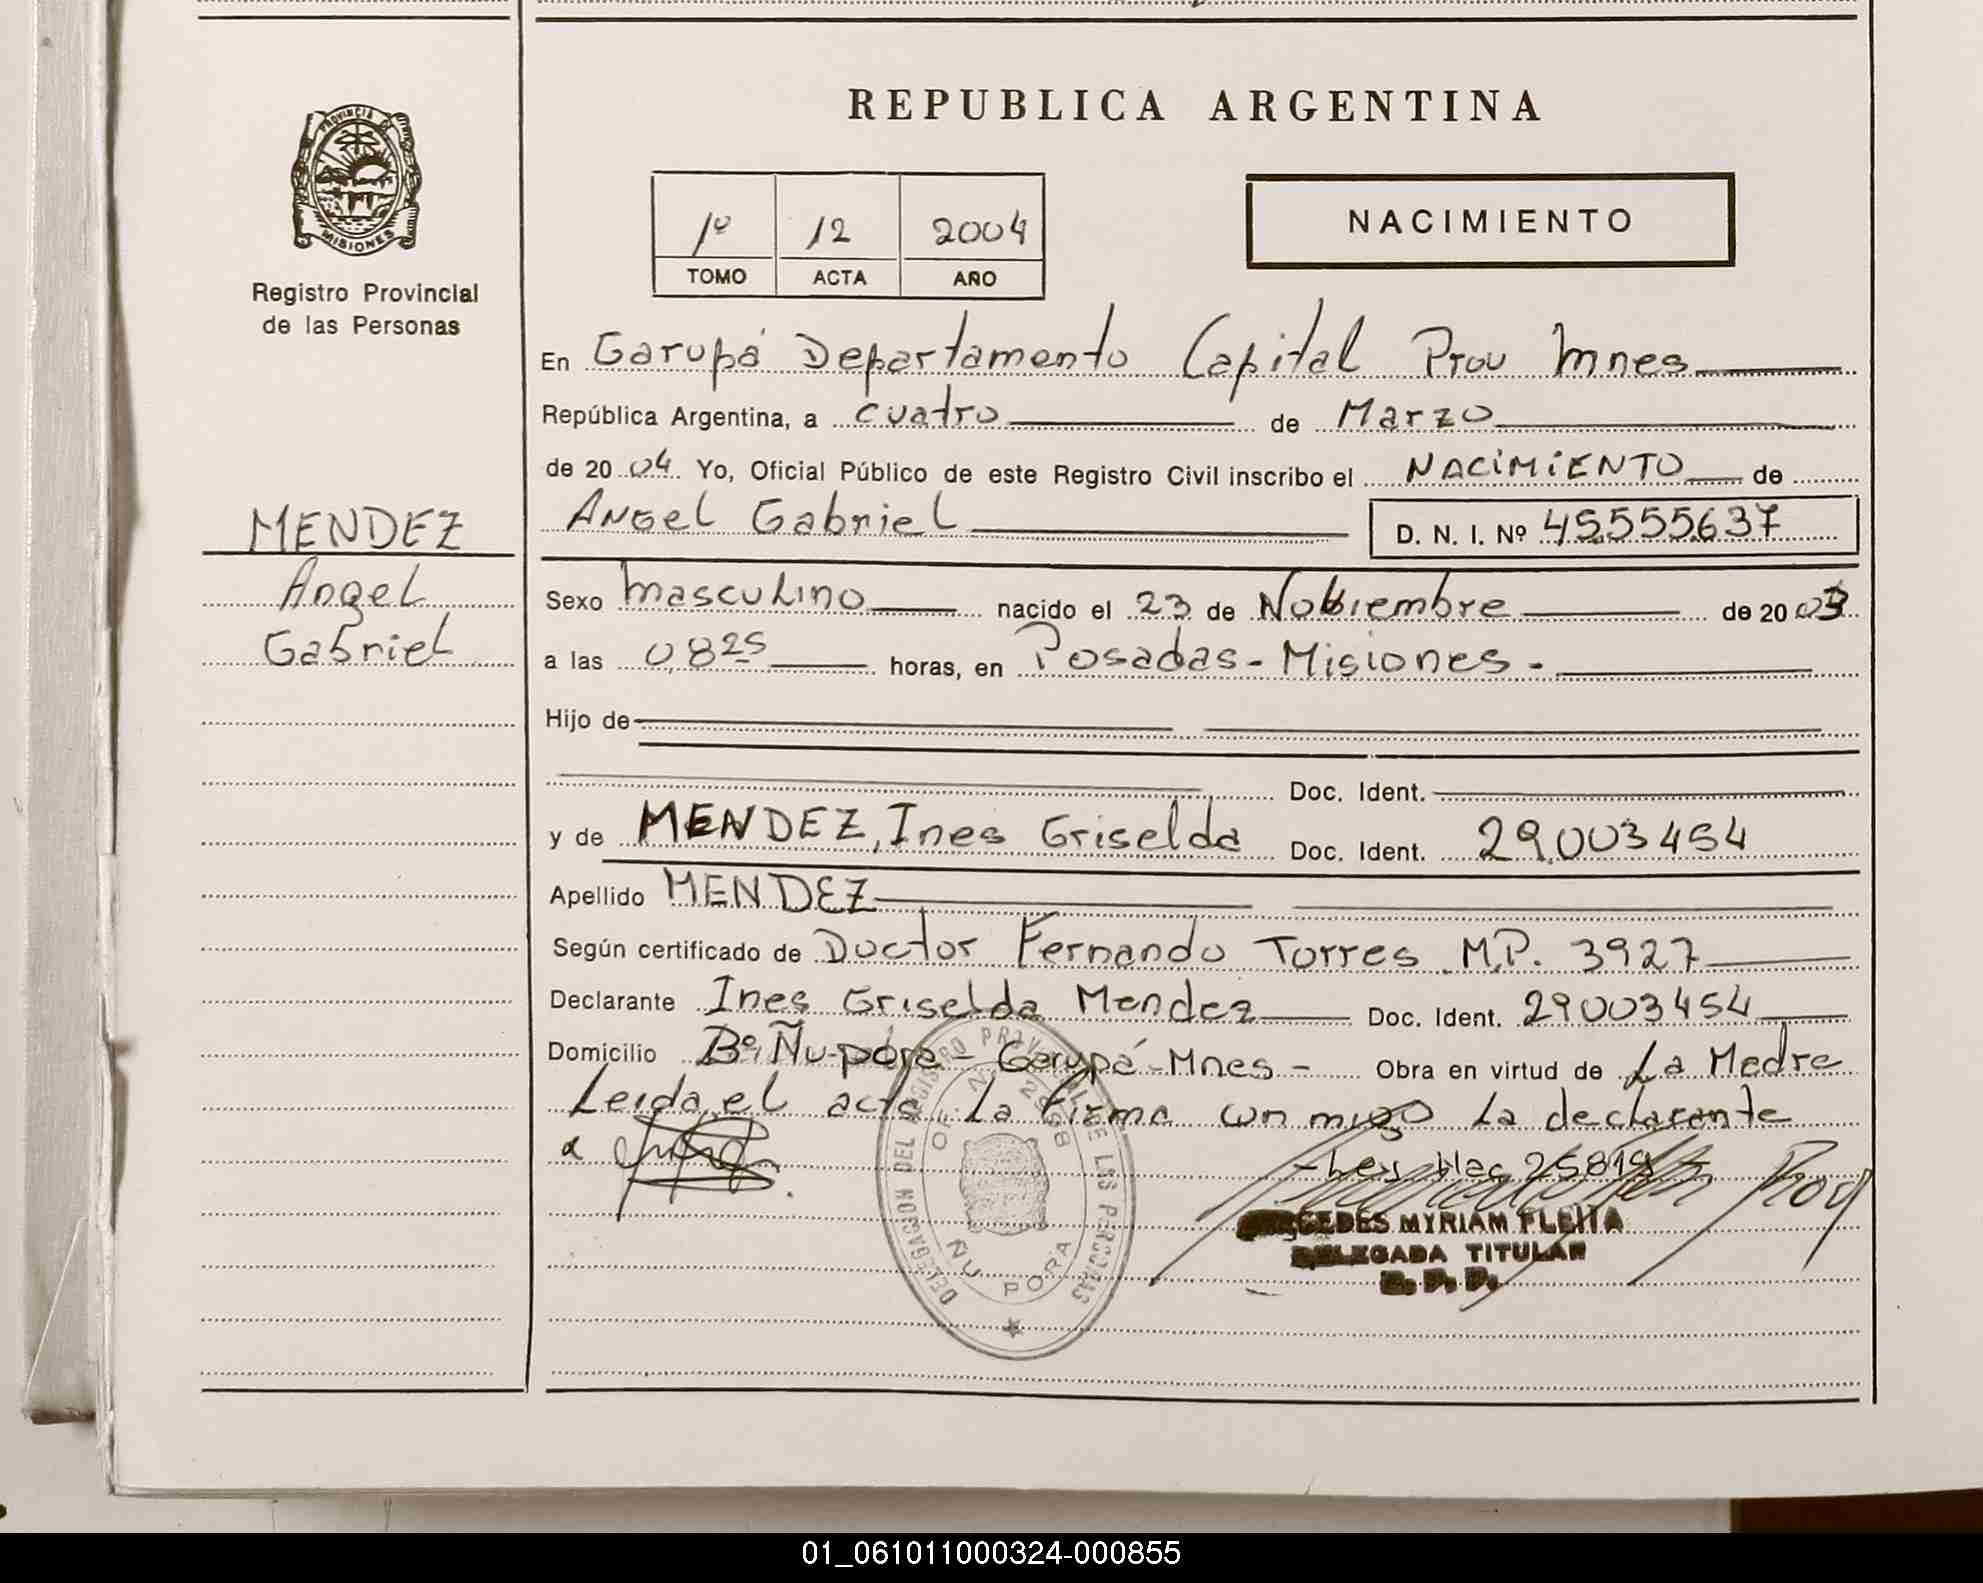 REPUBLICA ARGENTINA
PROVINCIA DE MISIONES
Registro Provincial
de las Personas
1º 12 2004
TOMO ACTA AÑO
NACIMIENTO
En Garupá Departamento Capital Prov Mnes
República Argentina, a cuatro de Marzo
de 2004 Yo, Oficial Público de este Registro Civil inscribo el NACIMIENTO de
Angel Gabriel D. N. I. Nº 45.555.637
MENDEZ
Angel
Gabriel
Sexo masculino nacido el 23 de Noviembre de 2003
a las 08 25 horas, en Posadas - Misiones -
Hijo de
Doc. Ident.
y de MENDEZ, Ines Griselda Doc. Ident. 29.003454
Apellido MENDEZ
Según certificado de Doctor Fernando Torres M.P. 3927
Declarante Ines Griselda Mendez Doc. Ident. 29003454
Domicilio Bº Ñu-pora - Garupá - Mnes - Obra en virtud de La Madre
Leida el acta La firma con migo La declarante
Ley Nac 25819
DELEGACION DEL REGISTRO PROVINCIAL DE LAS PERSONAS
OF Nº 2958
ÑU PORA
MERCEDES MYRIAM FLEITA
DELEGADA TITULAR
R. P. P.
01_061011000324-000855